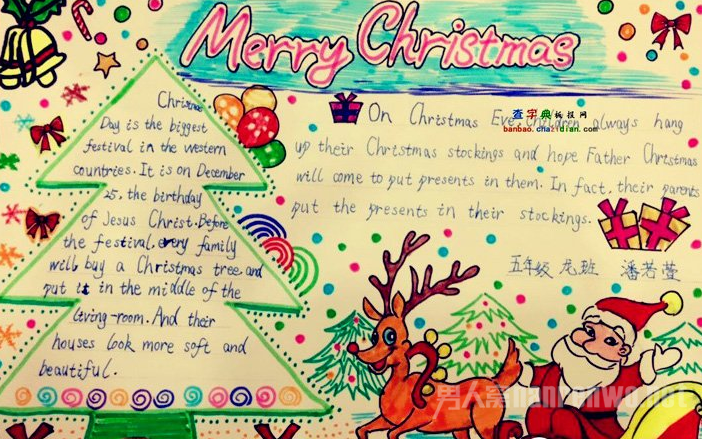 Merry Christmas
Christmas
Day is the biggest
festival in the western
countries. It is on December
25, the birthday
of Jesus Christ. Before
the festival, every family
will buy a Christmas tree and
put it in the middle of the
living-room. And their
houses look more soft and
beautiful.
On Christmas Eve, Children always hang
查字典板报网
banbao.chazidian.com
up their Christmas stockings and hope Father Christmas
will come to put presents in them. In fact, their parents
put the presents in their stockings.
五年级 龙班 潘若莹